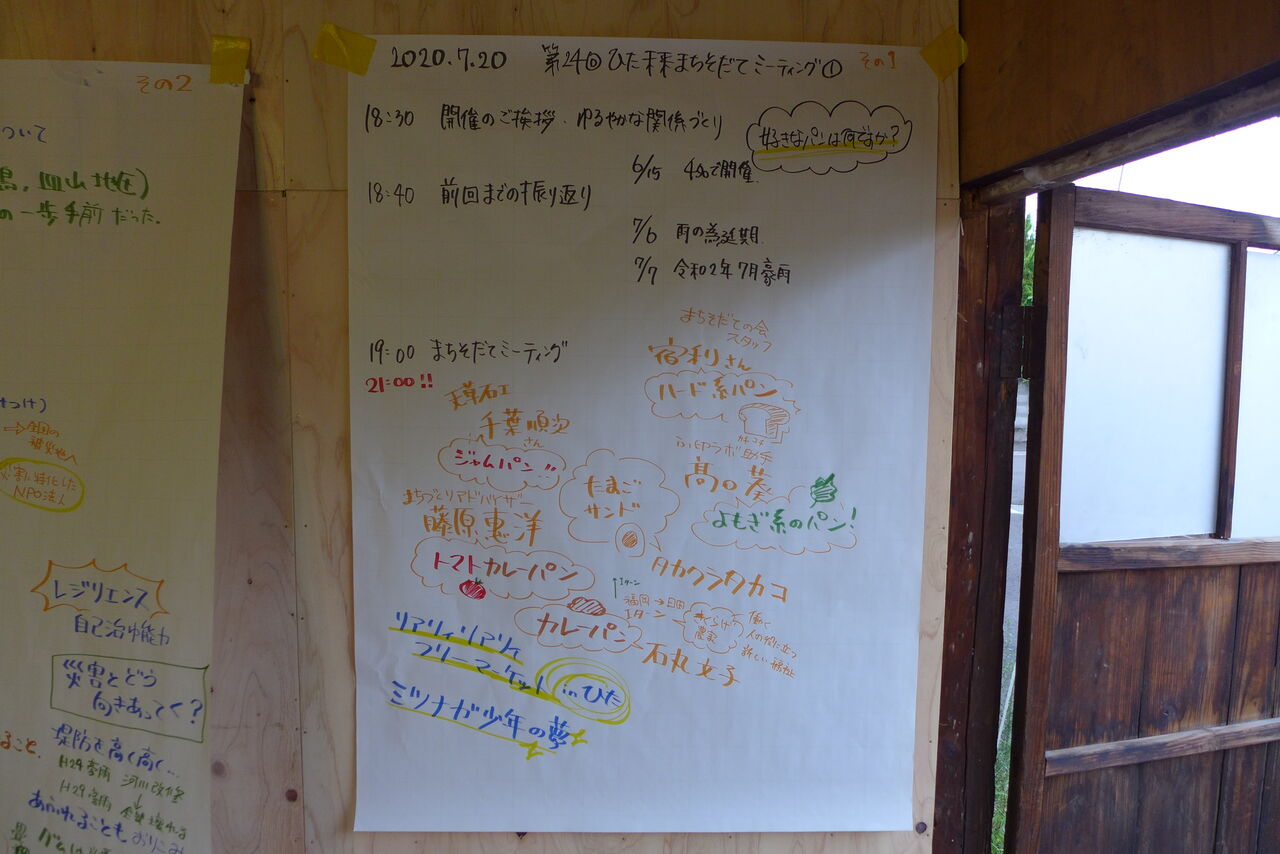 その2
ついて
皿山地区)
の一歩手前だった。
⇒全国の
被災地へ
災害に特化した
NPO法人
レジリエンス
自己治癒能力
災害とどう
向きあってく?
ること。
堤防を高く高く…
H24豪雨 河川改修
H29豪雨
あふれることもおりこみ
2020.7.20 第24回ひた未来まちそだてミーティング① その1
18:30 開催のご挨拶・ゆるやかな関係づくり
好きなパンは何ですか?
6/15 4名で開催
18:40 前回までの振り返り
7/6 雨の為延期
7/7 令和2年7月豪雨
まちそだての会
スタッフ
19:00 まちそだてミーティング
宿利さん
21:00!!
ハード系パン
天草石工
千葉順次
さん
ジャムパン
ふ印ラボ助手
髙口葵
たまご
サンド
よもぎ系のパン!
まちづくりアドバイザー
藤原惠洋
トマトカレーパン
タカクラタカコ
Iターン
福岡→日田
Iターン
きくらげ
農家
働く
人の役に立つ
新しい福祉
カレーパン
石丸文子
リアリィリアリィ
フリーマーケット inひた
ミツナガ少年の夢